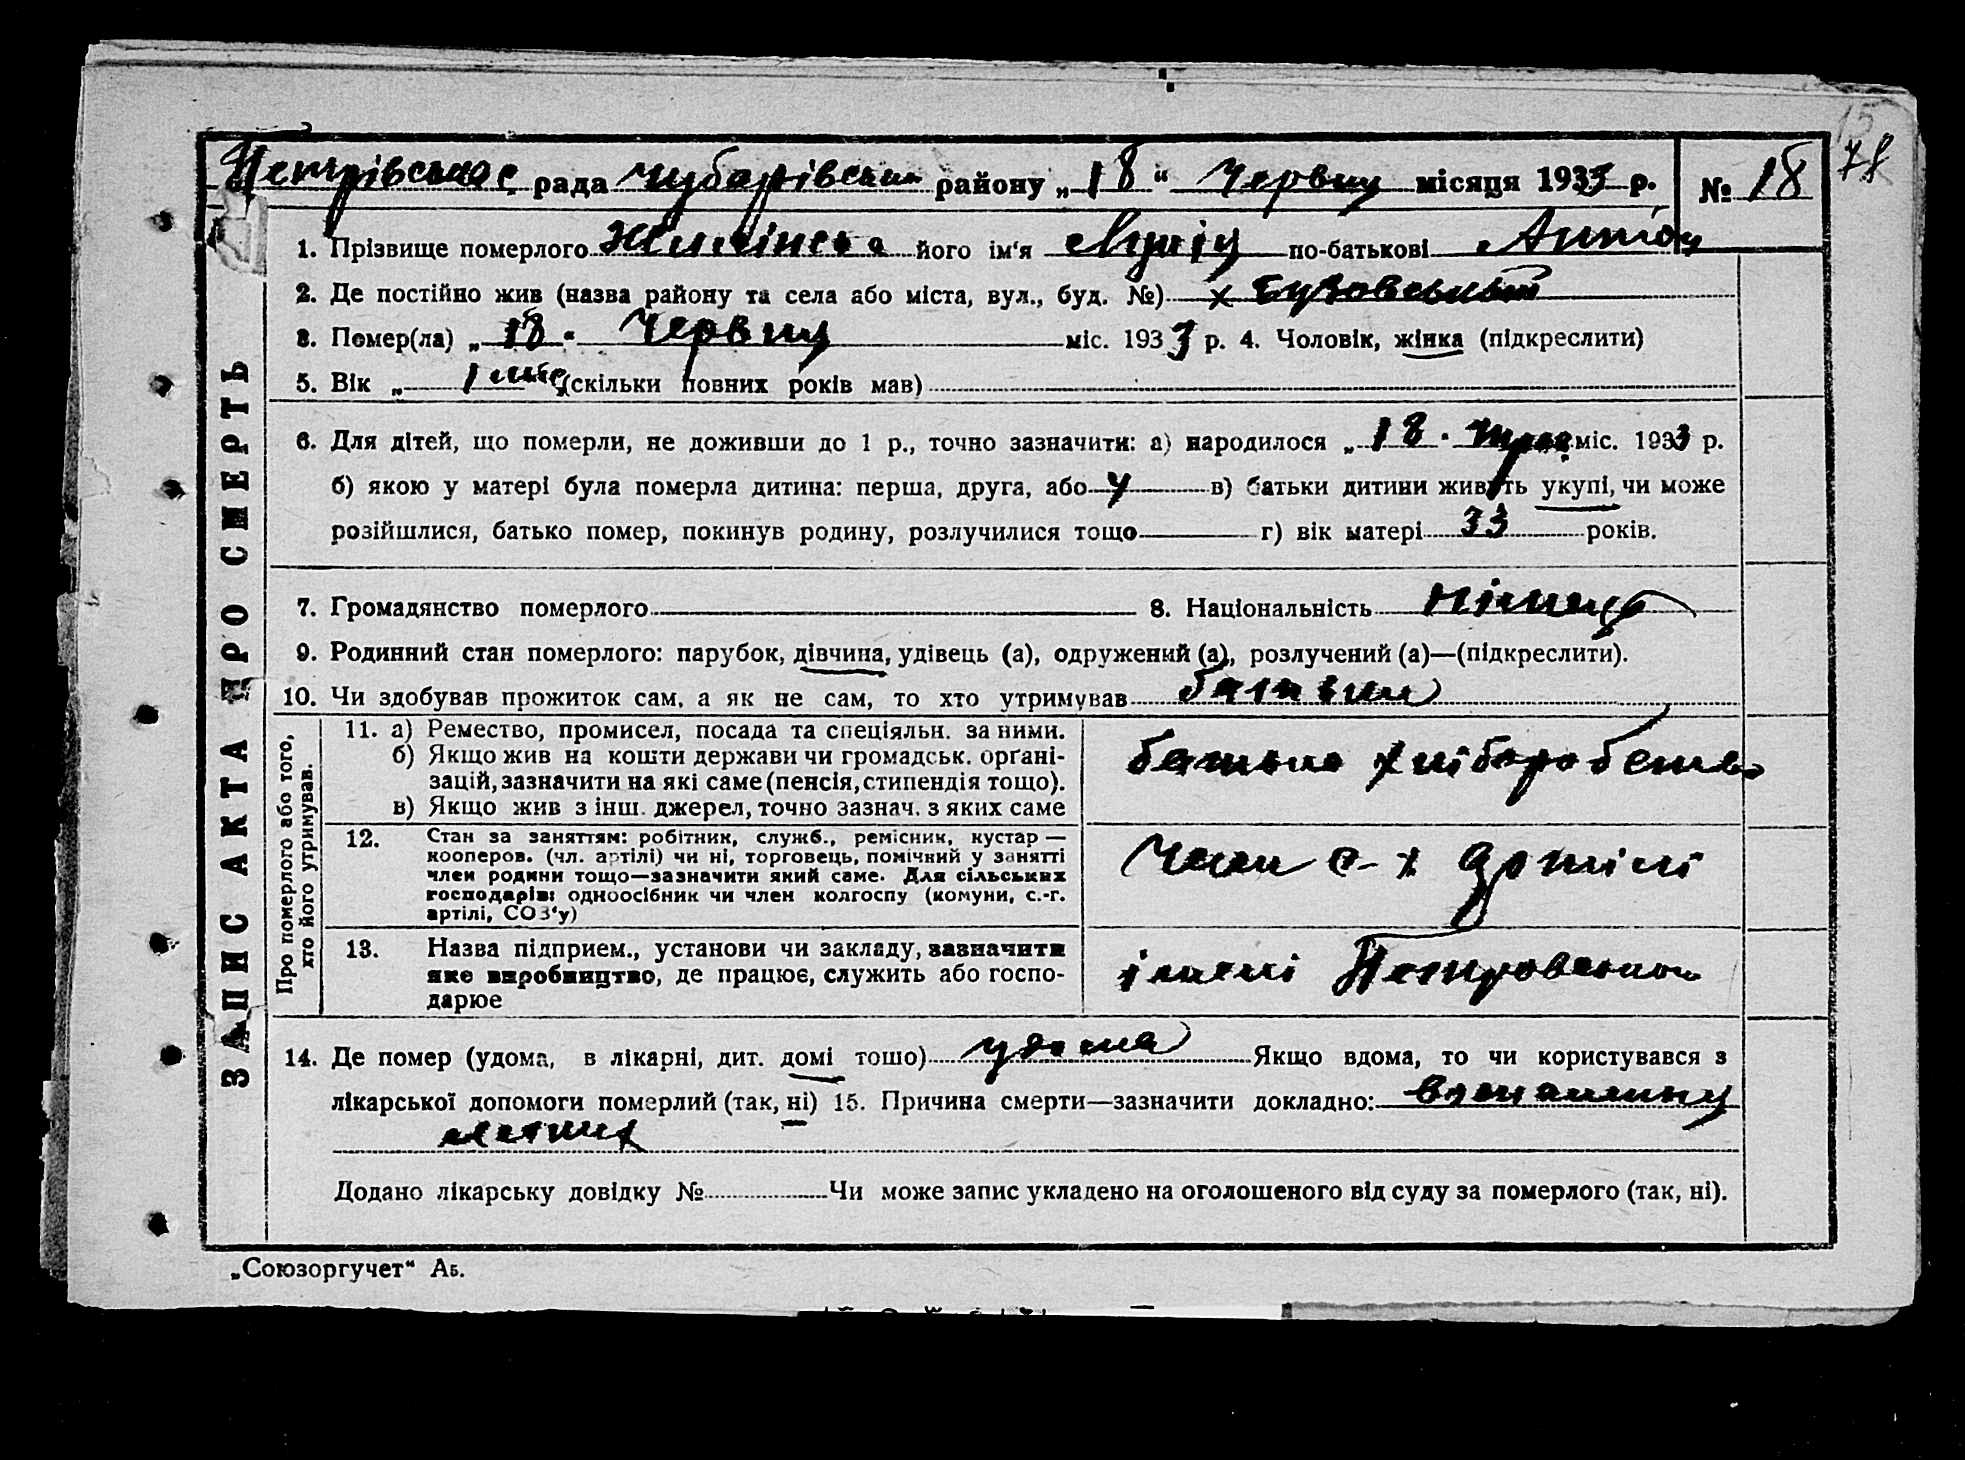 15
78
Петрівської рада Чубарівськ району „18“ Червня місяця 1933 р. № 18
1. Прізвище померлого його ім‘я по-батькові Антон
2. Де постійно жив (назва району та села або міста, вул., буд. №) х Бузовський
3. Помер(ла) „18“ Червня міс. 1933 р. 4. Чоловік, жінка (підкреслити)
5. Вік „ 1 міс (скільки повних років мав)
6. Для дітей, що померли, не доживши до 1 р., точно зазначити: а) народилося „18“ трав міс. 1933 р.
б) якою у матері була померла дитина: перша, друга, або 4 в) батьки дитини живуть укупі, чи може
розійшлися, батько помер, покинув родину, розлучилися тощо г) вік матері 33 років.
7. Громадянство померлого 8. Національність німець
9. Родинний стан померлого: парубок, дівчина, удівець (а), одружений (а), розлучений (а)—(підкреслити).
10. Чи здобував прожиток сам, а як не сам, то хто утримував батьки
11. а) Ремество, промисел, посада та спеціяльн. за ними.
б) Якщо жив на кошти держави чи громадськ. орґані-
зацій, зазначити на які саме (пенсія, стипендія тощо).
в) Якщо жив з інш. джерел, точно зазнач. з яких саме
батько хліборобство
12. Стан за заняттям: робітник, служб., ремісник, кустар —
кооперов. (чл. артілі) чи ні, торговець, помічний у занятті
член родини тощо—зазначити який саме. Для сільських
господарів: одноосібник чи член колгоспу (комуни, с.-г.
артілі, СОЗ‘у)
член с-х артілі
13. Назва підприєм., установи чи закладу, зазначити
яке виробництво, де працює, служить або госпо-
дарює
імені Петровського
14. Де помер (удома, в лікарні, дит. домі тошо) удома Якщо вдома, то чи користувався з
лікарської допомоги померлий (так, ні) 15. Причина смерти—зазначити докладно:
легких
Додано лікарську довідку № Чи може запис укладено на оголошеного від суду за померлого (так, ні).
ЗАПИС АКТА ПРО СМЕРТЬ
Про померлого або того,
хто його утримував.
„Союзоргучет“ Аб.